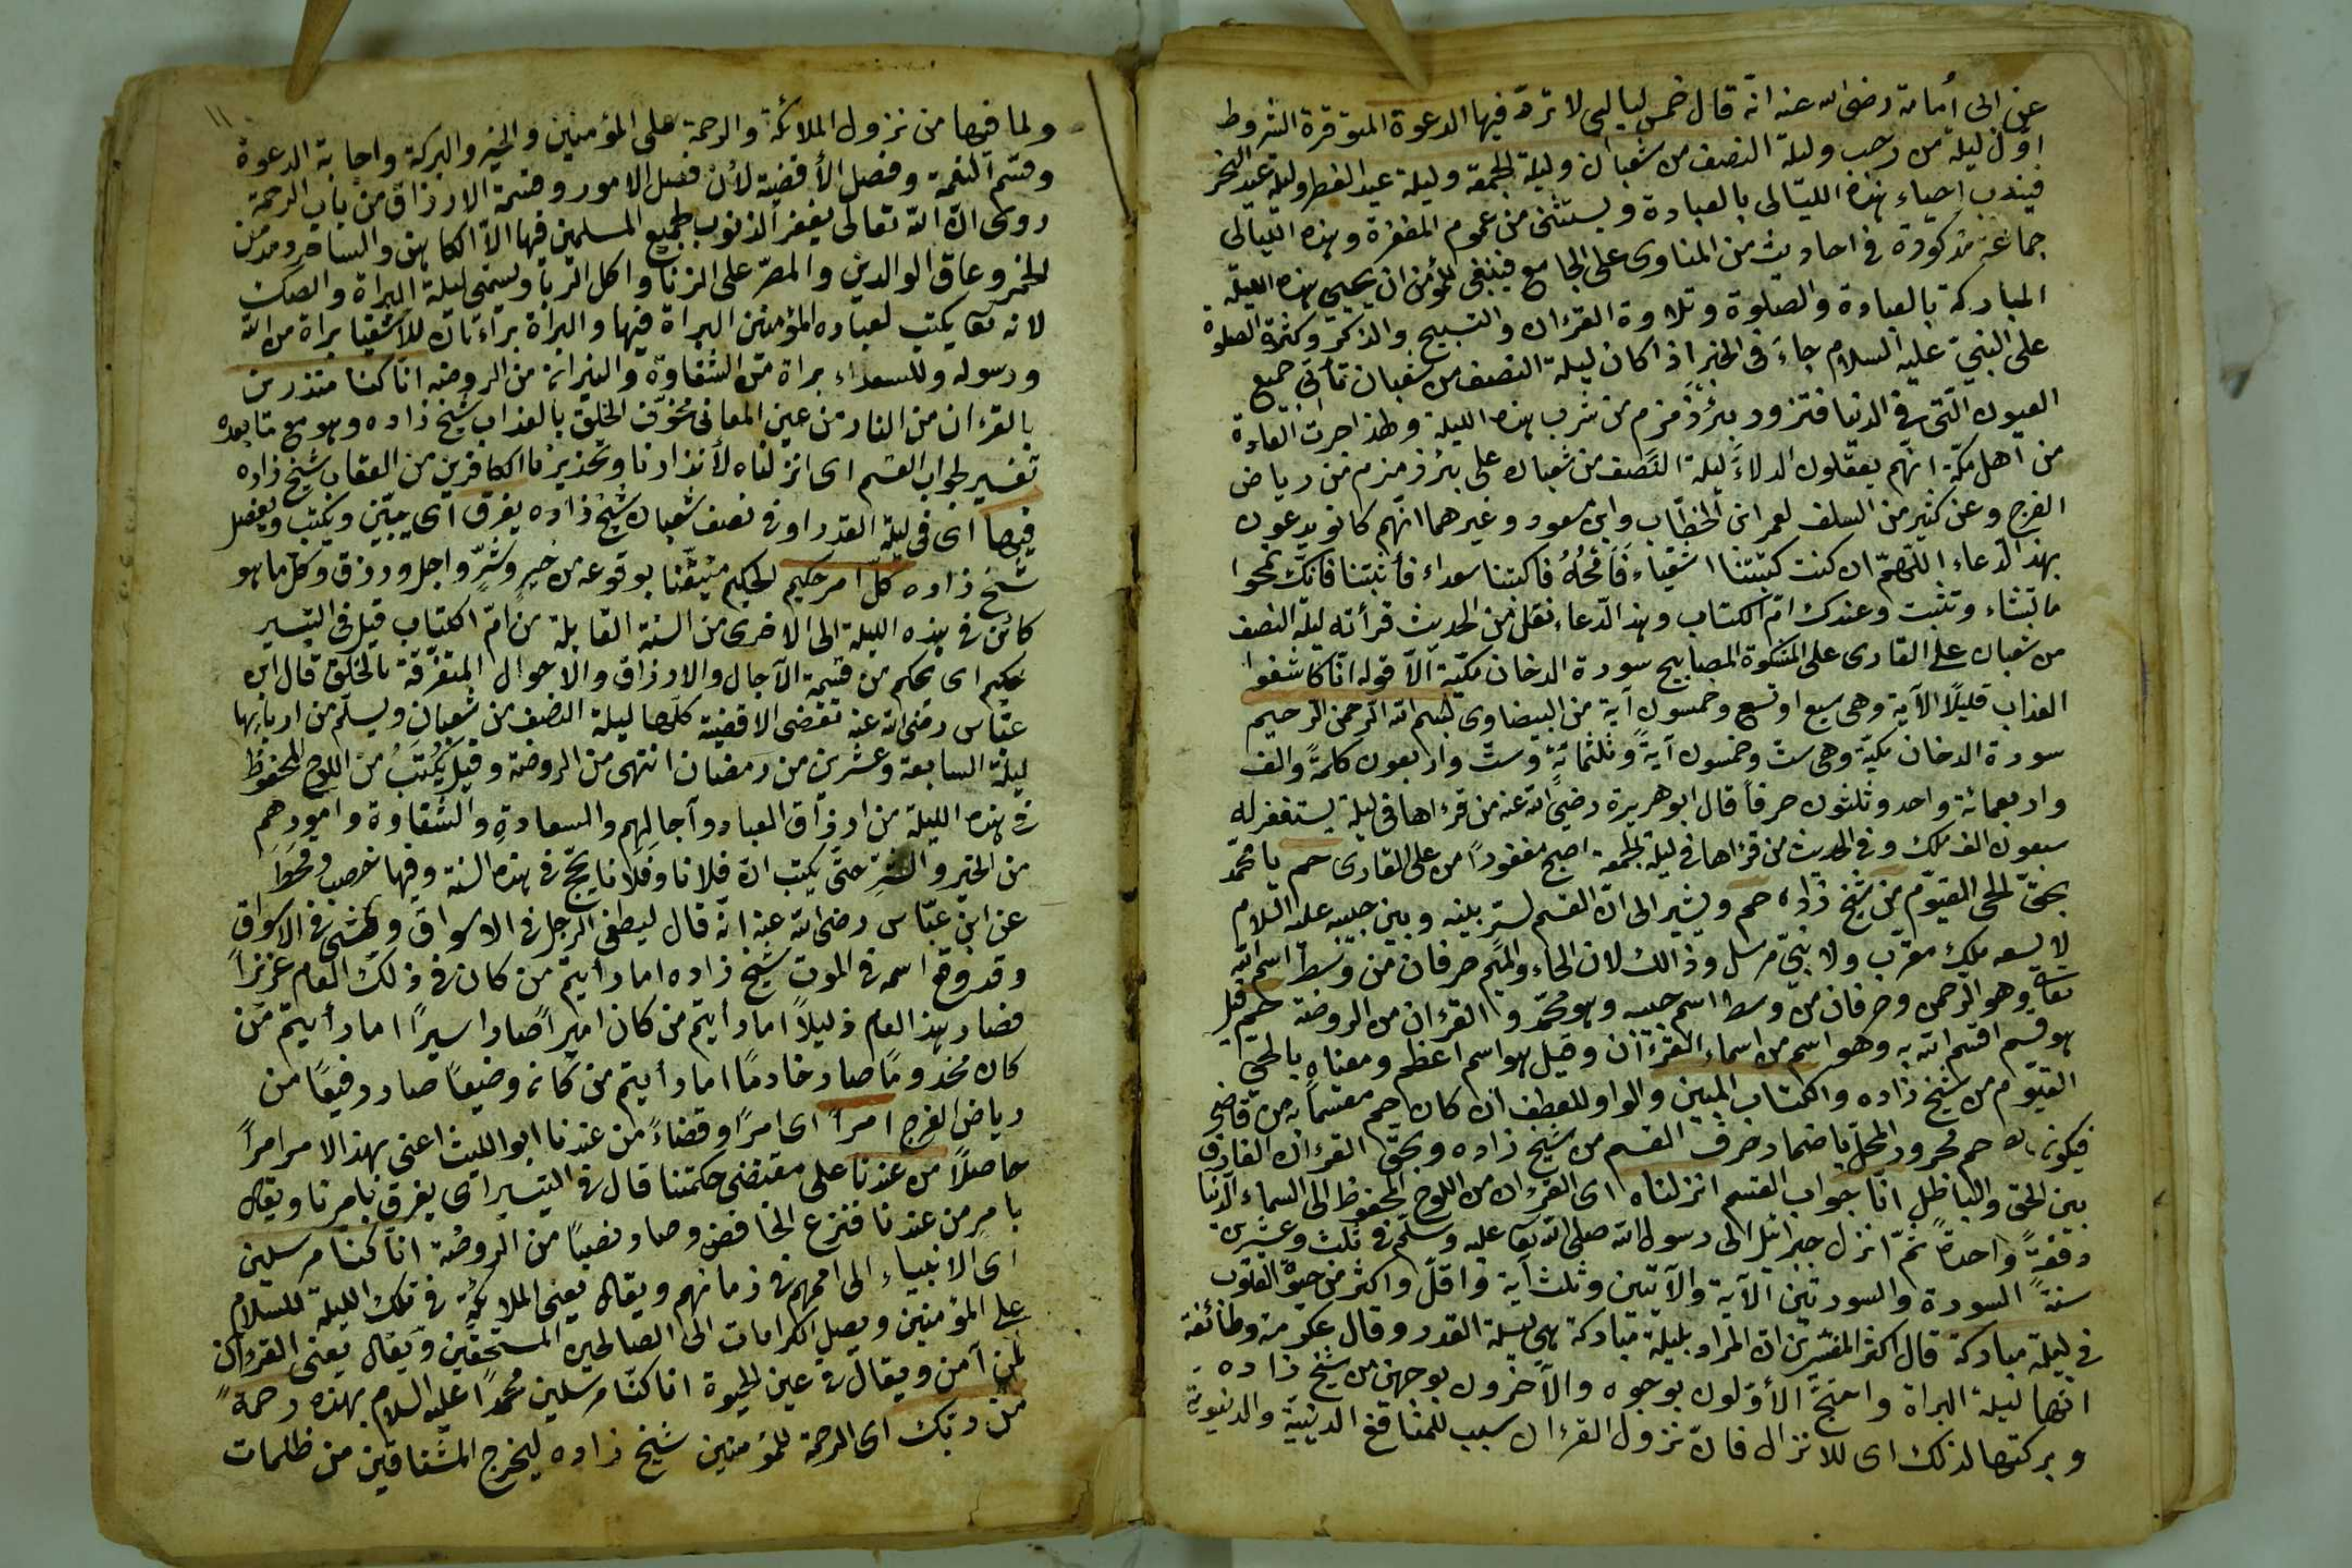 عن ابى أمامة رضى الله عنه انه قال خمس ليالى لا تردّ فيها الدعوة المتوفرة الشروط
اوّل ليلة من رجب وليلة النصف من شعبان وليلة الجمعة وليلة عيد الفطر وليلة عيد النحر
فيندب احياء هذه الليالى بالعبادة ويستثنى من عموم المغفرة وهذه الليالى
جماعة مذكورة فى احاديث من المناوى على الجامع فينبغى للمؤمن ان يحيى هذه الليلة
المباركة بالعبادة والصلوة وتلاوة القرءان والتسبيح والذكر وكثرة الصلوة
على النبىّ عليه السلام جاء فى الخبر اذا كان ليلة النصف من شعبان تأتى جميع
العيون الّتى فى الدنيا فتزور بئر زمزم من شرب هذه الليلة ولهذا جرت العادة
من اهل مكّة انّهم يعقلون الدلاء ليلة النصف من شعبان على بئر زمزم من رياض
الفرج وعن كثير من السلف لعمر ابن الخطّاب وابن مسعود وغيرهما انّهم كانو يدعون
بهذ الدّعاء اللّهمّ ان كنت كتبتنا اشقياء فامحهُ فاكتبنا سعداء فأثبتنا فانّك تمحوا
ما تشاء وتثبت وعندك امّ الكتاب وهذ الدّعاء نقل من الحديث قرأته ليلة النصف
من شعبان على القارى على المشكوة المصابيح سورة الدخان مكّية الّا قوله انّا كاشفوا
العذاب قليلًا الآية وهى سبع او تسع وخمسون آية من البيضاوى بسم الله الرّحمن الرّحيم
سورة الدخان مكيّة وهى ستّ وخمسون آيةً وثلثمائةٍ وستّ واربعون كلمةً والف
واربعمائة واحد وثلثون حرفاً قال ابو هريرة رضى الله عنه من قرءاها فى ليلة يستغفر له
سبعون الف ملك وفى الحديث من قرءاها فى ليلة الجمعة اصبح مغفورًا من على القارى حم يا محمّد
بحقّ الحى القيّوم من شيخ زاده حم ويشير الى انّ القسم لستر بينه وبين حبيبه عليه السّلام
لا يسعه ملك مقرب ولا نبىّ مرسل وذالك لان الحاء والميم حرفان من وسط اسم الله
تعالى وهو الرحمن وحرفان من وسط اسم حبيبه وهو محمّد والقرءان من الروضة حم قيل
هو قسم اقسم الله به وهو اسم من اسماء القرءان وقيل هو اسم اعظم ومعناه يا لحى
القيّوم من شيخ زاده والكتاب المبين والواو للعطف ان كان حم مقسماً به من قاضى
فيكون حم مجرور المحلّ باضمار حرف القسم من شيخ زاده وبحقّ القرءان الفارق
بين الحق والباطل انّا جواب القسم انزلناه اى القرءان من اللوح المحفوظ الى السماء الدّنيا
دفعةً واحدةً ثمّ انزل جبرائيل الى رسول الله صلى الله تعا عليه وسلّم فى ثلث وعشرين
سنةً السورة والسورتين الآية والآيتين وثلث آية واقلّ واكثر من حيوة القلوب
فى ليلة مباركة قال اكثر المفسّرين ان المراد بليلة مباركة هى ليلة القدر وقال عكرمة وطائفة
انّها ليلة البراة واحتجّ الأوّلون بوجوه والآخرون بوجهين من شيخ زاده
وبركتها لذلك اى للانزال فانّ نزول القرءان سبب للمنافع الدينية والدنيوية
ولما فيها من نزول الملائكة والرحمة على المؤمنين والخير والبركة واجابة الدعوة
وقسم النعمة وفصل الأقضية لأن فصل الامور وقسمة الارزاق من باب الرحمة
روى انّ الله تعالى يغفر الذنوب لجميع المسلمين فيها الّا الكاهن والساحر ومدمن
الخمر وعاق الوالدين والمصرّ على الزنا واكل الربا ويسمّى ليلة البراة والصك
لانه تعا يكتب لعباده المؤمنين البراة فيها والبراة براءتان للاشقيا براة من الله
ورسوله وللسعداء براة من الشقاوة والنيران من الروضة انّا كنا منذرين
بالقرءان من النار من عين المعانى مخوّف الخلق بالعذاب شيخ زاده وهو مع ما بعده
تفسير لجواب القسم اى انزلناه لأنذارنا وتحذيرنا الكافرين من العقاب شيخ زاده
فيها اى فى ليلة القدر او فى نصف شعبان شيخ زاده يفرق اى يبيّن ويكتب ويفصل
شيخ زاده كلّ امر حكيم لحكيم متيقّنا بوقوعه من خير وشرّ واجل ورزق وكل ما هو
كائن فى هذه الليلة الى الاخرى من السنة القابلة من امّ الكتاب قيل فى التيسير
حكيم اى محكم من قسمة الآجال والارزاق والاحوال المتفرّقة بالخلق قال ابن
عبّاس رضى الله عنه تقضى الاقضية كلّها ليلة النصف من شعبان ويسلّم من اربابها
ليلة السابعة وعشرين من رمضان انتهى من الروضة وقيل يُكتَبُ من اللوح المحفوظ
فى هذه الليلة من ارزاق العباد وآجالهم والسعادة والشقاوة وامورهم
من الخير والشرّ حتّى يكتب انّ فلانا وفلانا يحجّ فى هذه السنة وفيها خصب وقحط
عن ابن عبّاس رضى الله عنه انّه قال ليطغى الرجل فى الاسواق ويمشى فى الاسواق
وقد وقع اسمه فى الموت شيخ زاده اما رأيتم من كان فى ذلك العام عزيزاً
فصار بهذ العام ذليلًا اما رأيتم من كان اميرًا صار اسيرًا اما رأيتم من
كان مخدومًا صار خادمًا اما رأيتم من كان وضيعًا صار رفيعًا من
رياض الفرج امراً اى امرًا وقضاءً من عندنا ابو الليث اعنى بهذ الامر امراً
حاصلًا من عندنا على مقتضى حكمتنا قال فى التيسير اى يفرق بامرنا ويقال
بامرٍ من عندنا فنزع الخافض وصار نصبًا من الرّوضة انّا كنا مرسلين
اى الانبياء الى اممهم فى زمانهم ويقال يعنى الملائكة فى تلك الليلة للسلام
على المؤمنين ويصل الكرامات الى الصالحين المستحقّين ويقال يعنى القرءان
لمن آمن ويقال فى عين الحيوة انا كنّا مرسلين محمّدًا عليه السلام بهذه رحمةً
من ربك اى الرحمة للمؤمنين شيخ زاده ليخرج المشتاقين من ظلمات